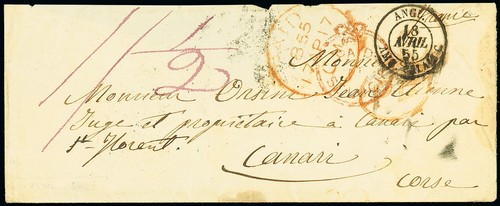 1/2
PAID
17 AP 17
1855
ANGL.
18
AVRIL
55
AMB. CALAIS
Monsieur
Monsieur Orsini Jean Etienne
Juge et propriétaire à Canari par
St Florent.
Canari
Corse